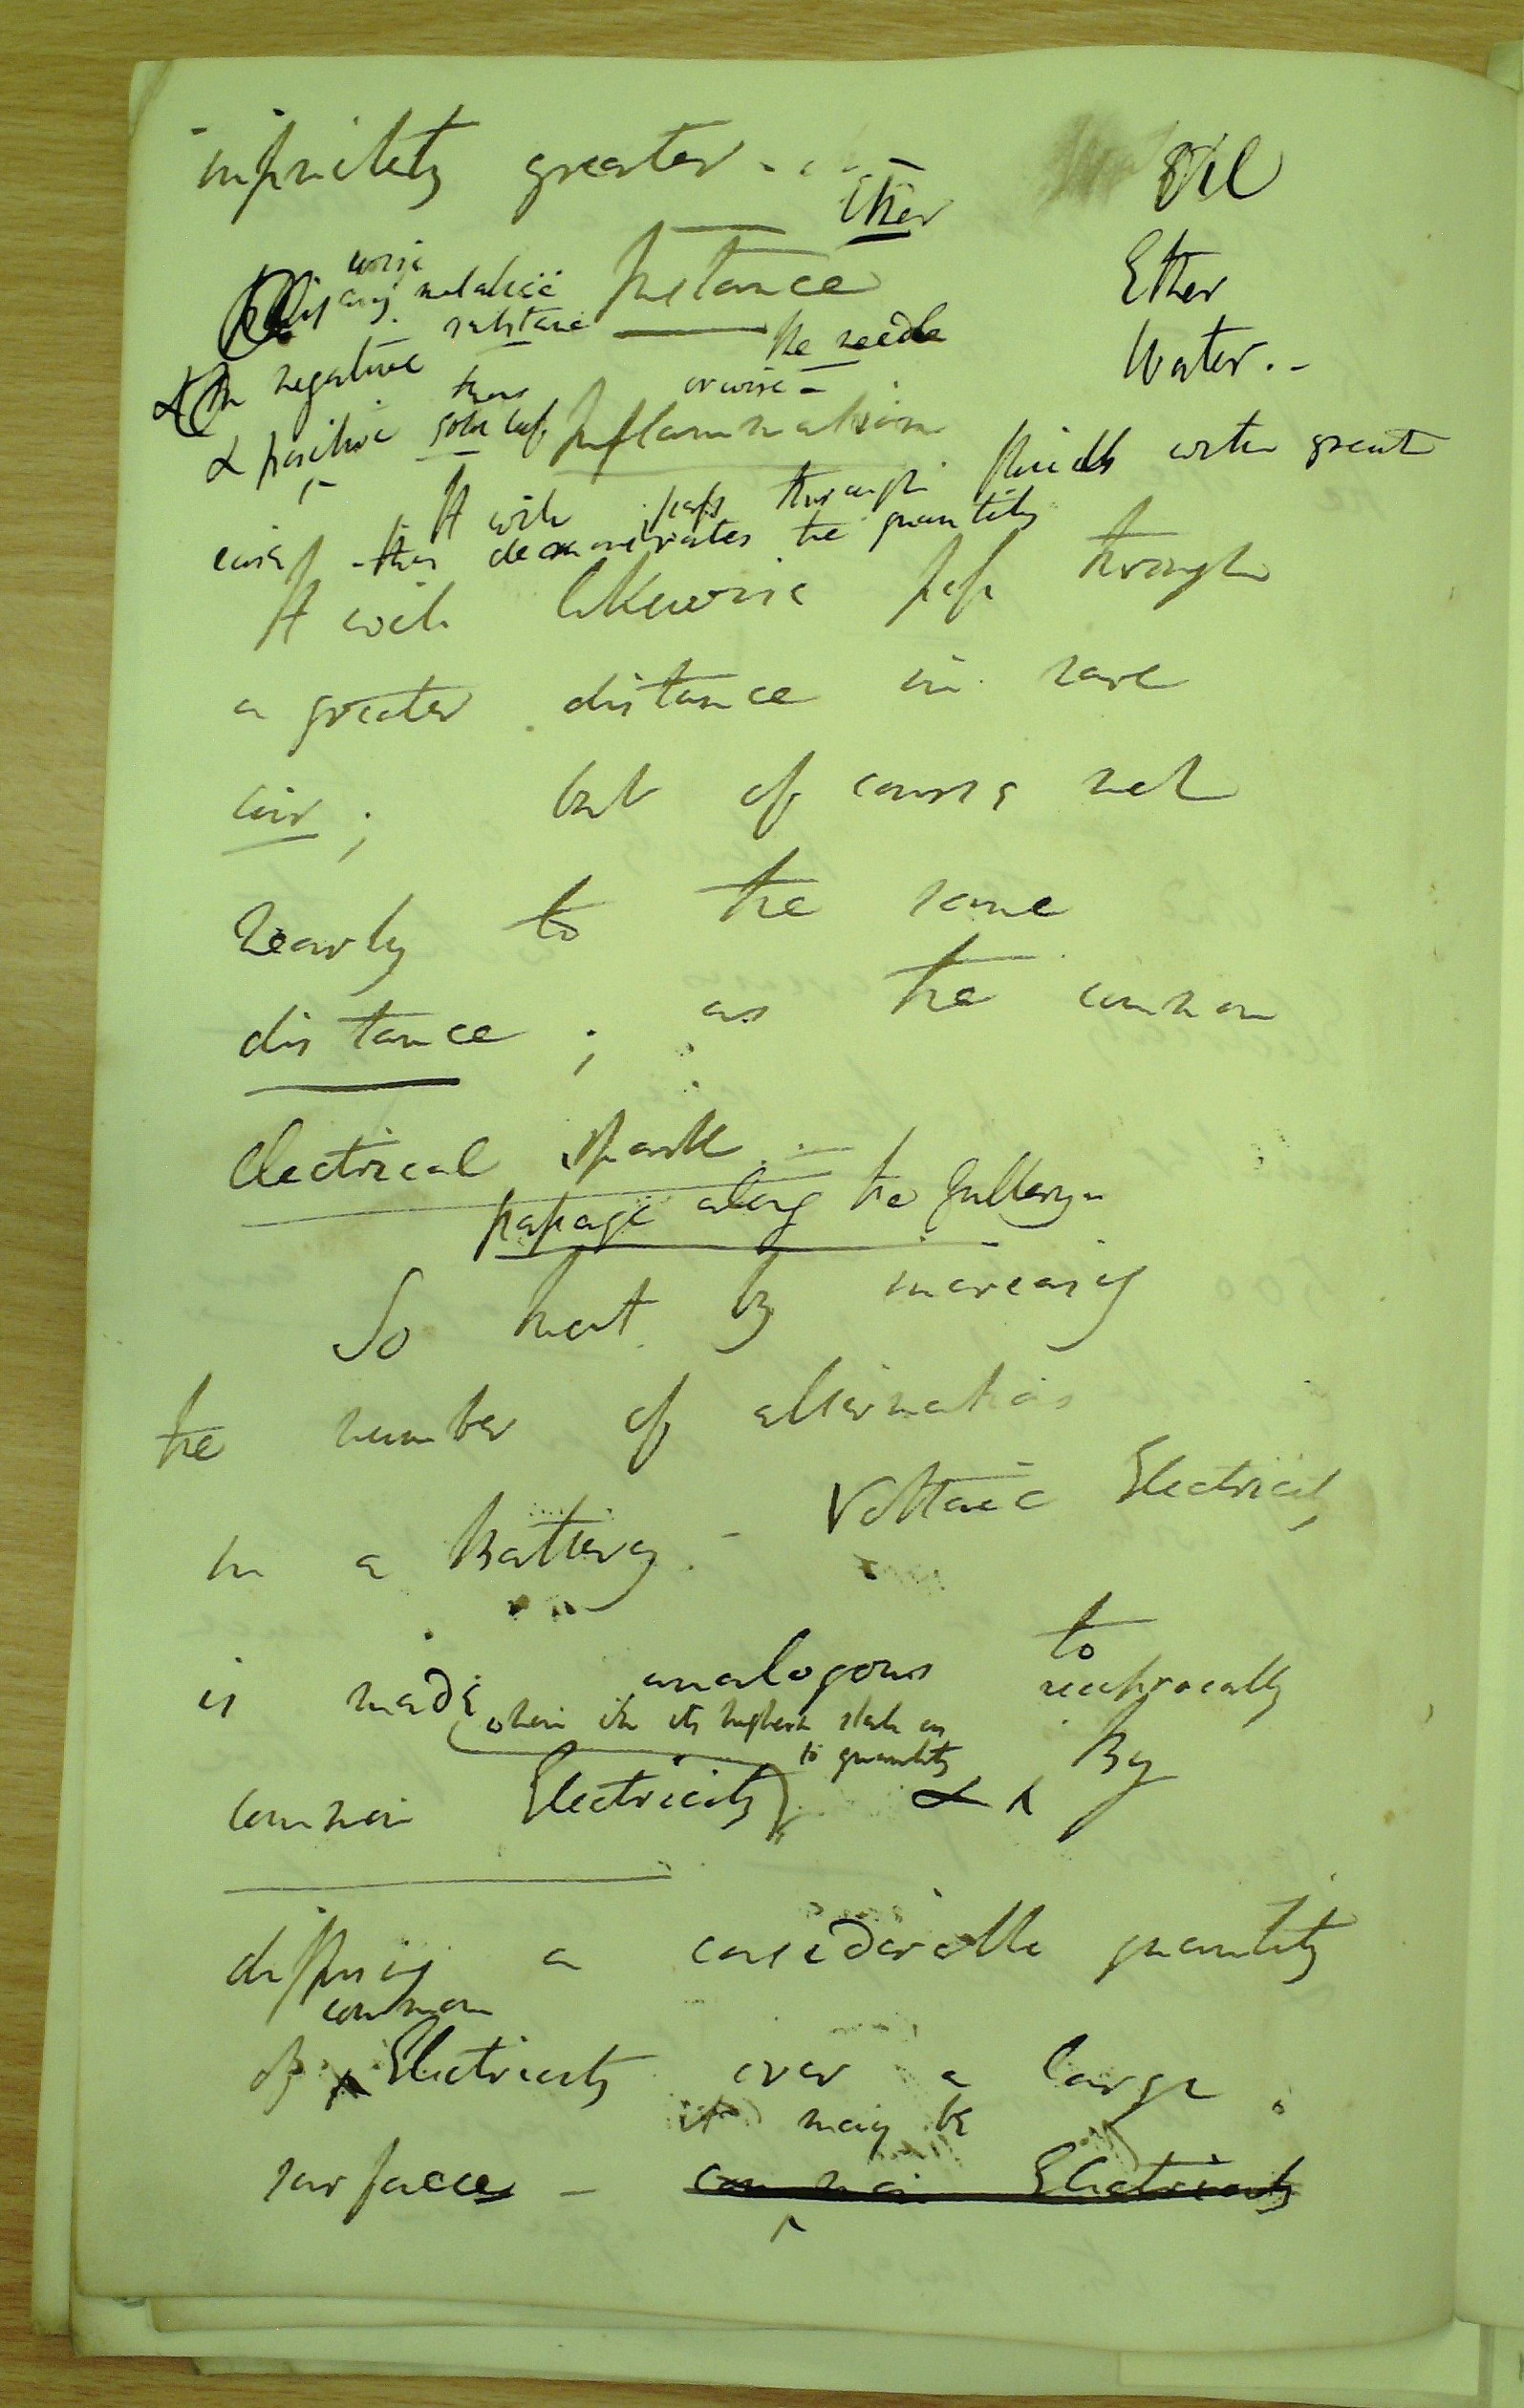 infinitely greater. -
Oil
Ether
Ether
Instance
wire
any metallic
substance
Water. -
the needle
or wire -
& negative
& positive thro gold leaf
Inflammation
It will pass through fluids with great
ease - this demonstrates the quantity
It will likewise pass through
a greater distance in rare
air; but of course not
nearly to the same
distance; as the common
Electrical spark. -
passage along the Gallery -
So that by increasing
the number of alternations
in a Battery. - Voltaic Electricity
is made analogous to
when in its highest state as
to quantity
reciprocally
common Electricity & By
diffusing a considerable quantity
common
of Electricity over a large
it may be
surface - common Electricity